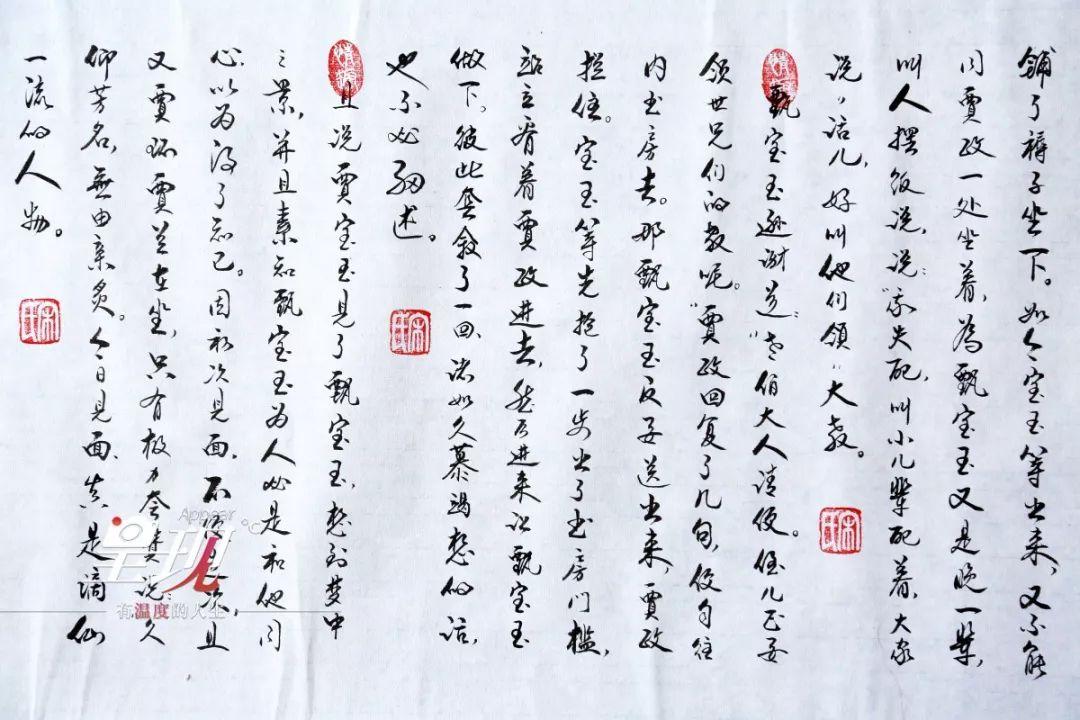 铺了褥子坐下。如今宝玉等出来，又不能
同贾政一处坐着，为甄宝玉又是晚一辈，
叫人摆饭说说：“我失配，叫小儿辈配着，大家
说说话儿，好叫他们领领大教。
甄宝玉逊谢道：“老伯大人请便。侄儿正要
领世兄们的教呢。”贾政回复了几句，便自往
内书房去。那甄宝玉反要送出来，贾政
拦住。宝玉等先抢了一步出了书房门槛，
站立看着贾政进去，然后进来让甄宝玉
做下。彼此套叙了一回，诸如久慕竭想的话，
也不必细述。
且说贾宝玉见了甄宝玉，想到梦中
之景，并且素知甄宝玉为人必是和他同
心，以为得了知己。因初次见面，不便造次，且
又贾环贾兰在坐，只有极力夸奖说：久
仰芳名，无由亲炙。今日见面，真是谪仙
一流的人物。
宋氏
宋氏
宋氏
Appear
呈现
℃
有温度的人生